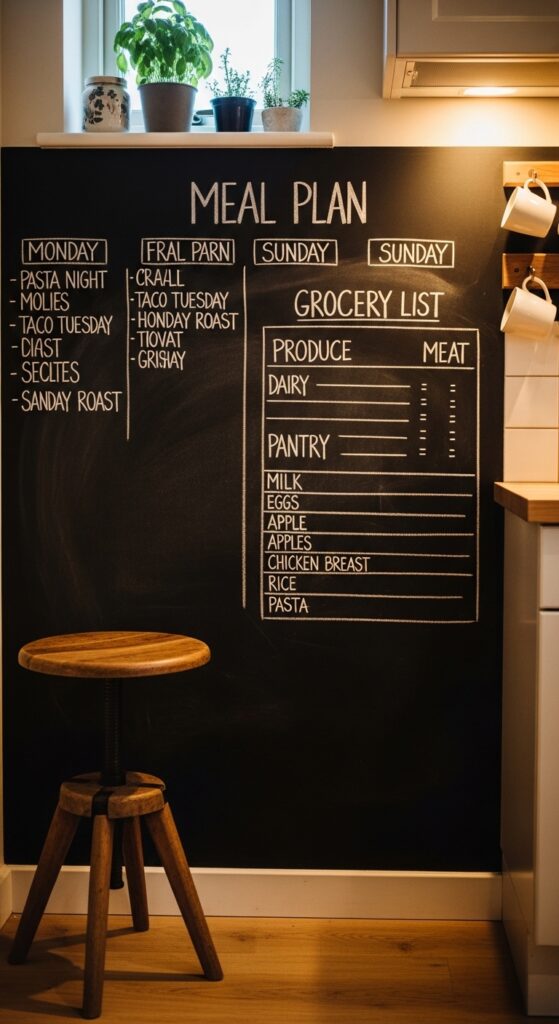 MEAL PLAN
MONDAY
- PASTA NIGHT
- MOLIES
- TACO TUESDAY
- DIAST
- SECLTES
- SANDAY ROAST
FRAL PARN
- CRALL
- TACO TUESDAY
- HONDAY ROAST
- TIOVAT
- GRISHAY
SUNDAY
SUNDAY
GROCERY LIST
PRODUCE MEAT
DAIRY
PANTRY
MILK
EGGS
APPLE
APPLES
CHICKEN BREAST
RICE
PASTA